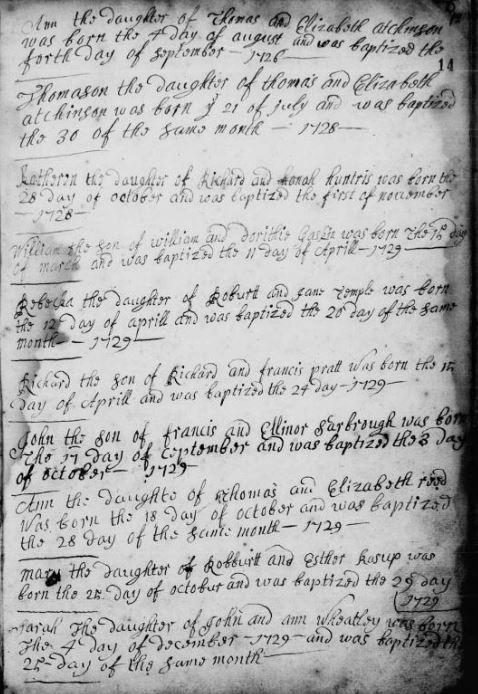 Ann the daughter of Thomas and Elizabeth atchinson
was born the 4 day of august and was baptized the
forth day of september — 1726
14
Thomason the daughter of thomas and Elizabeth
atchinson was born ye 21 of july and was baptized
the 30 of the same month — 1728 —
Katheron the daughter of Richard and honah huntris was born the
28 day of october and was baptized the first of november
— 1728 —
William the son of william and dorithie was born the day
of march and was baptized the 11 day of Aprill — 1729 —
Rebecka the daughter of Roburtt and Jane Temple was born
the 12 day of aprill and was baptized the 20 day of the same
month — 1729 —
Richard the son of Richard and francis pratt was born the
day of Aprill and was baptized the 24 day — 1729 —
John the son of francis and Ellinor Harbrough was born
The 17 day of September and was baptized the 3 day
of october — 1729
Ann the daughte of thomas and Elizabeth reed
was born the 18 day of october and was baptized
the 28 day of the same month — 1729 —
mary the daughter of Robburtt and Esther was
born the day of octobur and was baptized the 29 day
1729
Sarah The daughter of John and ann wheatley was born
The 4 day of december — 1729 — and was baptized the
25 day of the same month —